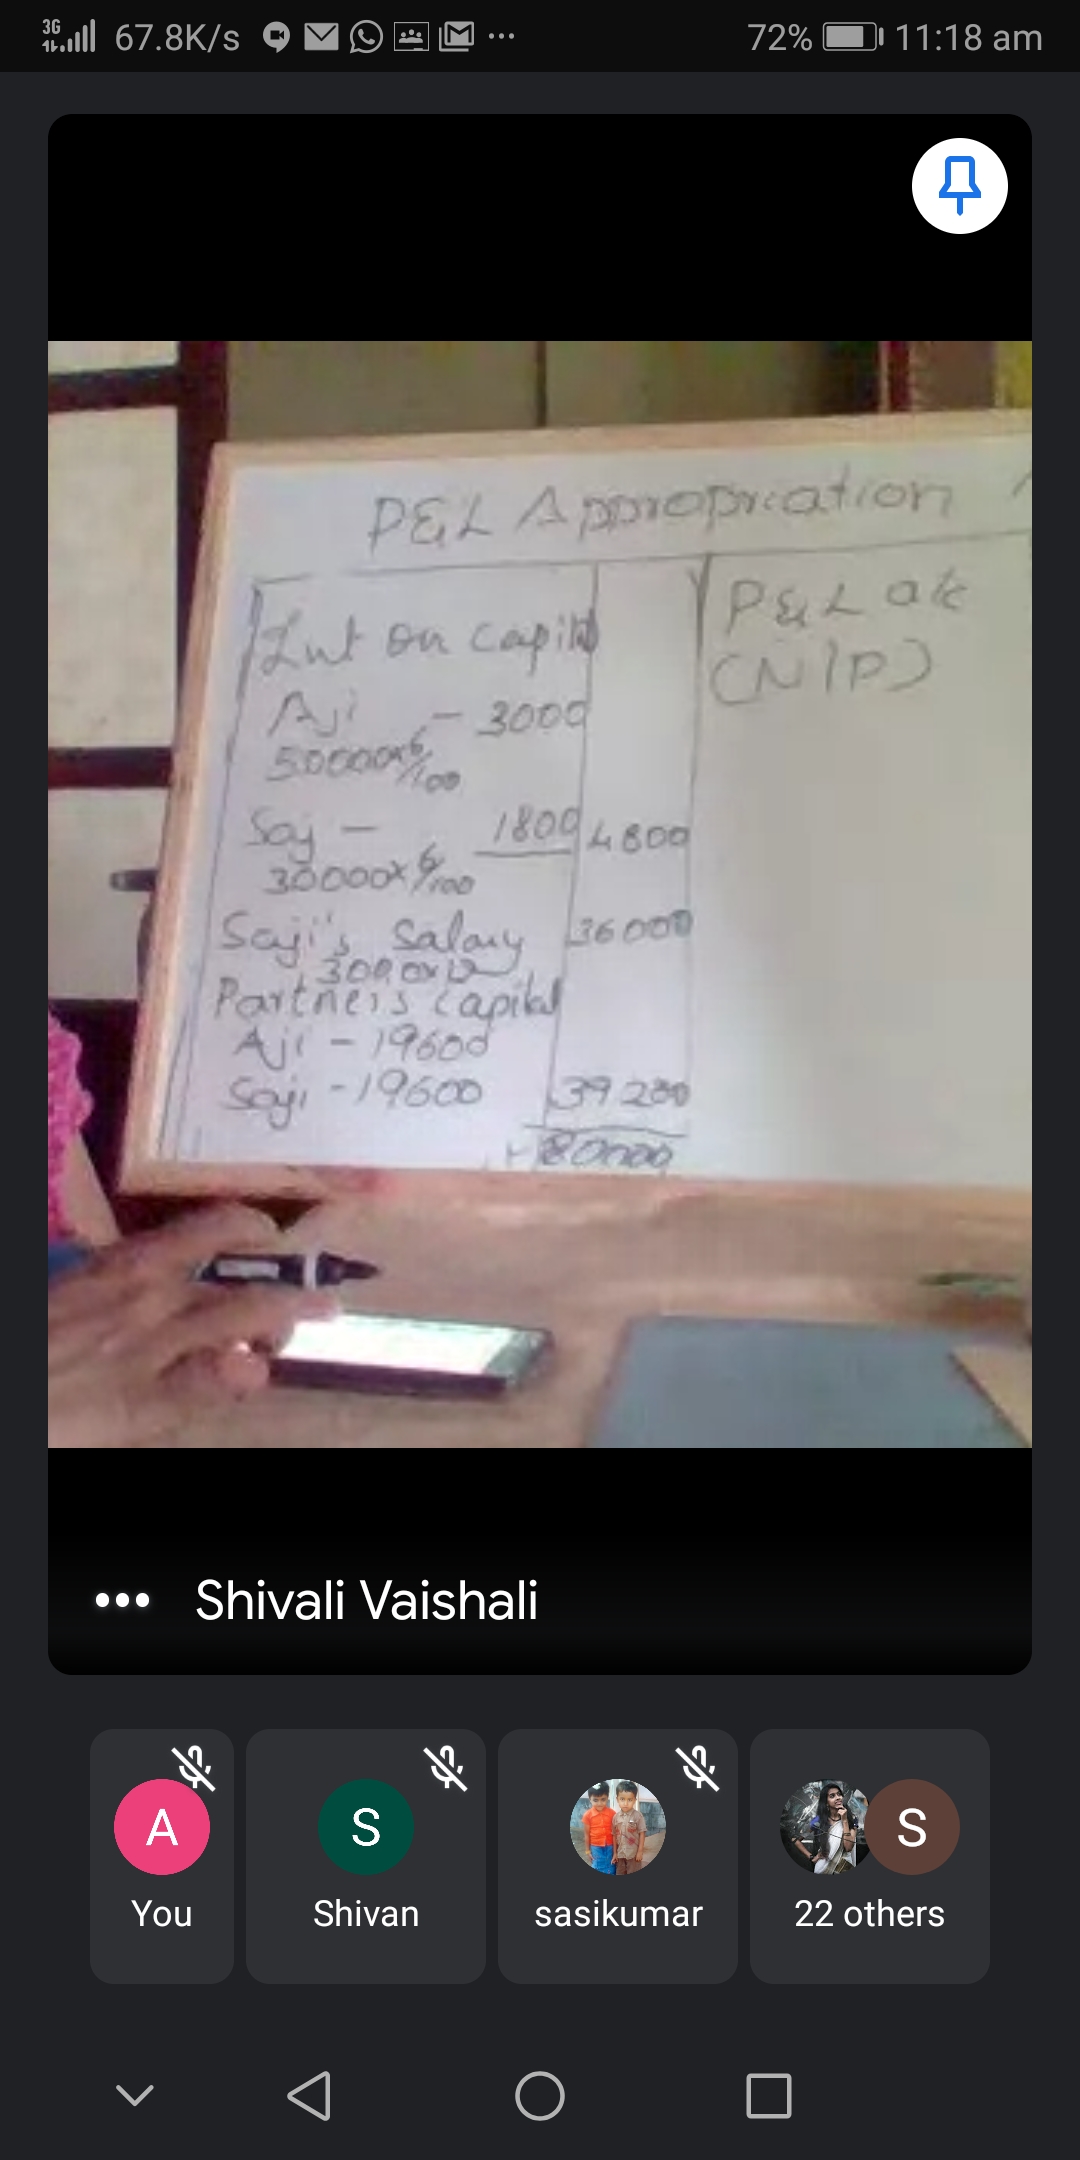 3G
67.8K/s
72%
11:18 am
P&L Appropriation
Int on capital
P&L a/c
(N/P)
Aji - 3000
50000x6/100
Saj - 1800 4800
30000x6/100
Saji's Salary 36000
3000x12
Partners capital
Aji - 19600
Saji - 19600 39200
80000
Shivali Vaishali
A
You
S
Shivan
sasikumar
S
22 others